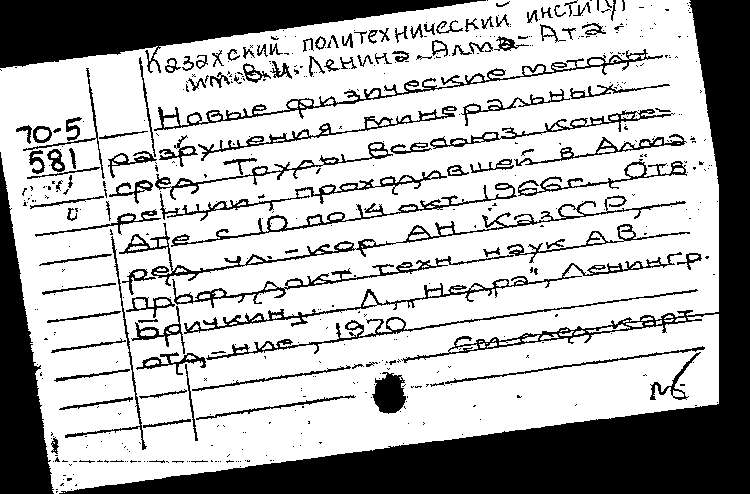 Казахский политехнический институт
им. В.И. Ленина. Алма-Ата.
70-5
581
Новые физические методы
разрушения минеральных
сред. Труды Всесоюз. конфе-
ренции, проходившей в Алма-
Ате с 10 по 14 окт. 1966 г., Отв.
ред. чл.-кор. АН КазССР,
проф., докт. техн. наук А.В.
Бричкин. Л., "Недра", Ленингр.
отд-ние, 1970
См след. карт